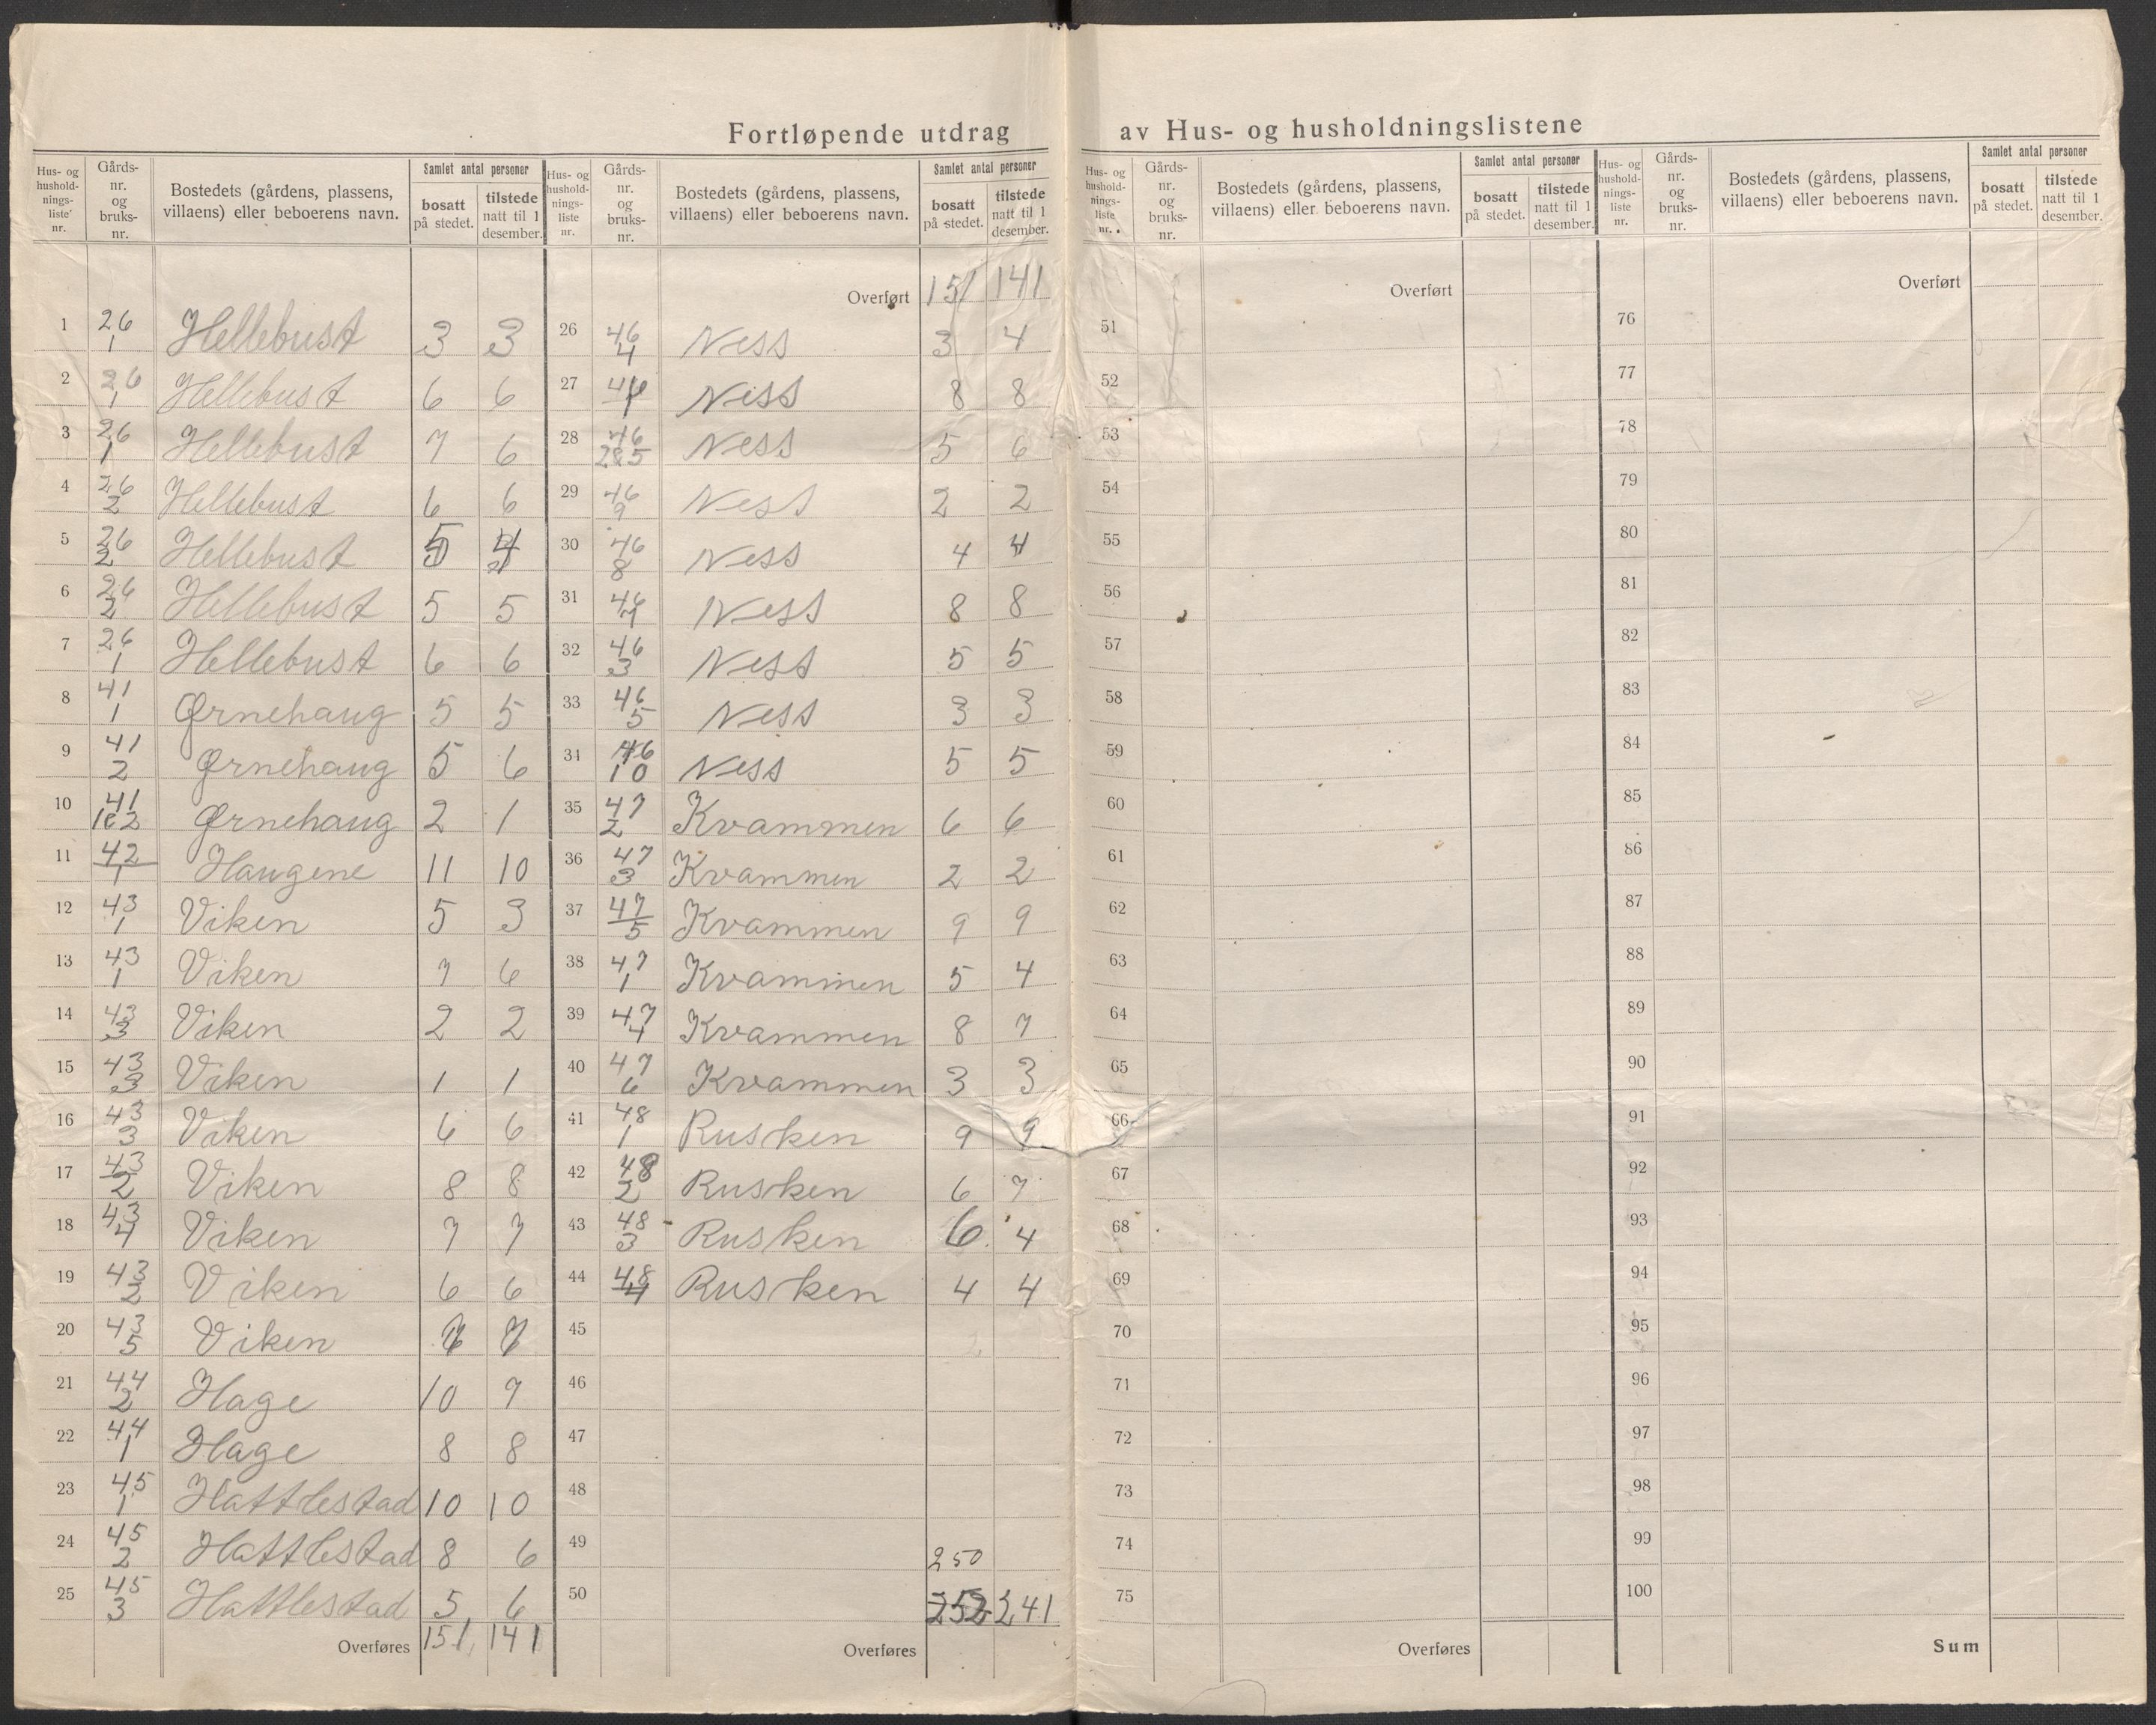 Fortløpende utdrag av Hus- og husholdningslistene
Hus- og hushold-nings-liste nr. | Gårds-nr. og bruks-nr. | Bostedets (gårdens, plassens, villaens) eller beboerens navn. | Samlet antal personer | bosatt på stedet. | tilstede natt til 1 desember.
1 26/1 Hellebust 3 3
2 26/1 Hellebust 6 6
3 26/1 Hellebust 7 6
4 26/2 Hellebust 6 6
5 26/2 Hellebust 5 4
6 26/2 Hellebust 5 5
7 26/1 Hellebust 6 6
8 41/1 Ørnehaug 5 5
9 41/2 Ørnehaug 5 6
10 41/1e2 Ørnehaug 2 1
11 42/1 Haugene 11 10
12 43/1 Viken 5 3
13 43/1 Viken 7 6
14 43/3 Viken 2 2
15 43/3 Viken 1 1
16 43/3 Viken 6 6
17 43/2 Viken 8 8
18 43/4 Viken 7 7
19 43/2 Viken 6 6
20 43/5 Viken
21 44/2 Hage 10 9
22 44/1 Hage 8 8
23 45/1 Hattlestad 10 10
24 45/2 Hattlestad 8 6
25 45/3 Hattlestad 5 6
Overføres 151 141
Hus- og hushold-nings-liste nr. | Gårds-nr. og bruks-nr. | Bostedets (gårdens, plassens, villaens) eller beboerens navn. | Samlet antal personer | bosatt på stedet. | tilstede natt til 1 desember.
Overført 151 141
26 46/4 Ness 3 4
27 Ness 8 8
28 46/2&5 Ness 5 6
29 46/9 Ness 2 2
30 46/8 Ness 4 4
31 46/7 Ness 8 8
32 46/3 Ness 5 5
33 46/5 Ness 3 3
34 46/10 Ness 5 5
35 47/2 Kvammen 6 6
36 47/3 Kvammen 2 2
37 47/5 Kvammen 9 9
38 47/1 Kvammen 5 4
39 47/4 Kvammen 8 7
40 47/6 Kvammen 3 3
41 48/1 Rusken 9 9
42 48/2 Rusken 6 7
43 48/3 Rusken 6 4
44 48/4 Rusken 4 4
45
46
47
48
49 250
50 252 241
Overføres
Hus- og hushold-nings-liste nr. | Gårds-nr. og bruks-nr. | Bostedets (gårdens, plassens, villaens) eller beboerens navn. | Samlet antal personer | bosatt på stedet. | tilstede natt til 1 desember.
Overført
51
52
53
54
55
56
57
58
59
60
61
62
63
64
65
66
67
68
69
70
71
72
73
74
75
Overføres
Hus- og hushold-nings-liste nr. | Gårds-nr. og bruks-nr. | Bostedets (gårdens, plassens, villaens) eller beboerens navn. | Samlet antal personer | bosatt på stedet. | tilstede natt til 1 desember.
Overført
76
77
78
79
80
81
82
83
84
85
86
87
88
89
90
91
92
93
94
95
96
97
98
99
100
Sum